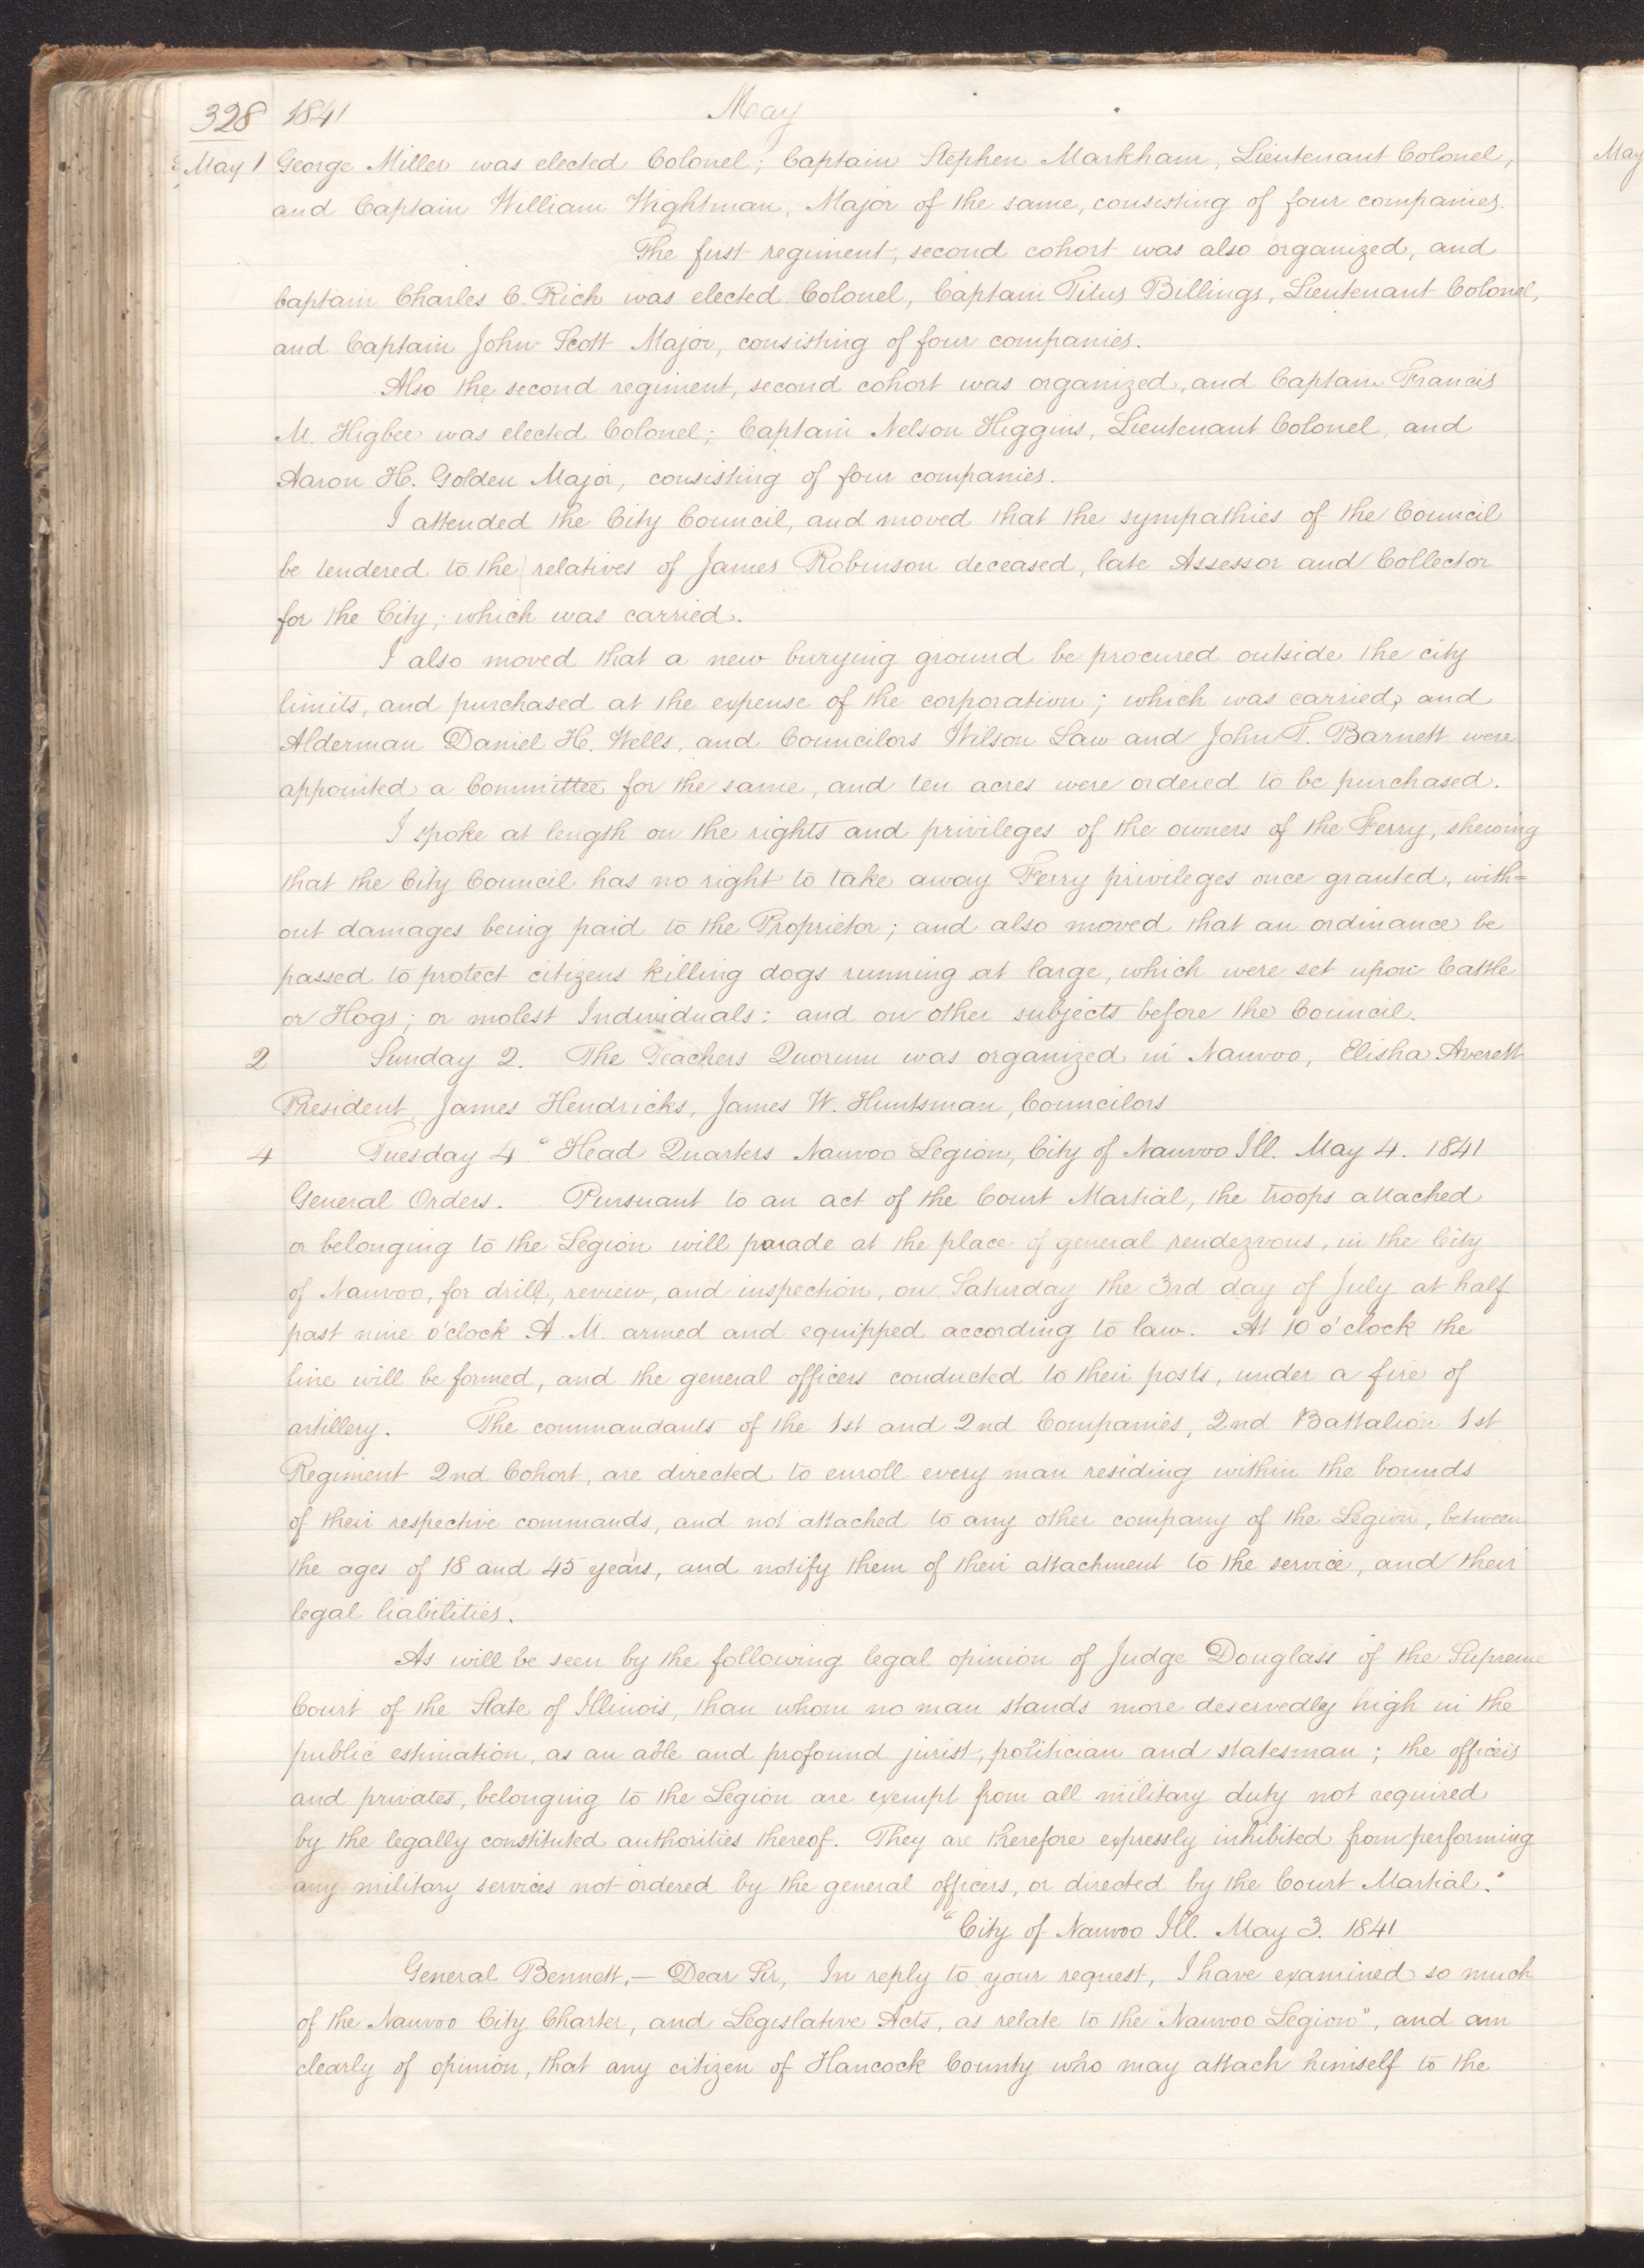 328 1841 May
May 1 George Miller was elected Colonel; Captain Stephen Markham, Lieutenant Colonel,
and Captain William Wightman, Major of the same, consisting of four companies.
The first regiment, second cohort was also organized, and
Captain Charles C. Rich was elected Colonel, Captain Titus Billings, Lieutenant Colonel,
and Captain John Scott Major, consisting of four companies.
Also the second regiment, second cohort was organized, and Captain Francis
M. Higbee was elected Colonel; Captain Nelson Higgins, Lieutenant Colonel, and
Aaron H. Golden Major, consisting of four companies.
I attended the City Council, and moved that the sympathies of the Council
be tendered to the relatives of James Robinson deceased, late Assessor and Collector
for the City; which was carried.
I also moved that a new burying ground be procured outside the city
limits, and purchased at the expense of the corporation; which was carried, and
Alderman Daniel H. Wells, and Councilors Wilson Law and John T. Barnett were
appointed a Committee for the same, and ten acres were ordered to be purchased.
I spoke at length on the rights and privileges of the owners of the Ferry, shewing
that the City Council has no right to take away Ferry privileges once granted, with=
out damages being paid to the Proprietor; and also moved that an ordinance be
passed to protect citizens killing dogs running at large, which were set upon Cattle
or Hogs; or molest Individuals: and on other subjects before the Council.
2 Sunday 2. The Teachers Quorum was organized in Nauvoo, Elisha Averett
President, James Hendricks, James W. Huntsman, Councilors
4 Tuesday 4. "Head Quarters Nauvoo Legion, City of Nauvoo Ill. May 4. 1841
General Orders. Pursuant to an act of the Court Martial, the troops attached
or belonging to the Legion will parade at the place of general rendezvous, in the City
of Nauvoo, for drill, review, and inspection, on Saturday the 3rd day of July at half
past nine o'clock A.M. armed and equipped according to law. At 10 o'clock the
line will be formed, and the general officers conducted to their posts, under a fire of
artillery. The commandants of the 1st and 2nd Companies, 2nd Battalion 1st
Regiment 2nd Cohort, are directed to enroll every man residing within the bounds
of their respective commands, and not attached to any other company of the Legion, between
the ages of 18 and 45 years, and notify them of their attachment to the service, and their
legal liabilities.
As will be seen by the following legal opinion of Judge Douglass of the Supreme
Court of the State of Illinois, than whom no man stands more deservedly high in the
public estimation, as an able and profound jurist, politician and statesman; the officers
and privates, belonging to the Legion are exempt from all military duty not required
by the legally constituted authorities thereof. They are therefore expressly inhibited from performing
any military services not ordered by the general officers, or directed by the Court Martial."
"City of Nauvoo Ill. May 3. 1841
General Bennett,— Dear Sir, In reply to your request, I have examined so much
of the Nauvoo City Charter, and Legislative Acts, as relate to the "Nauvoo Legion", and am
clearly of opinion, that any citizen of Hancock County who may attach himself to the
May